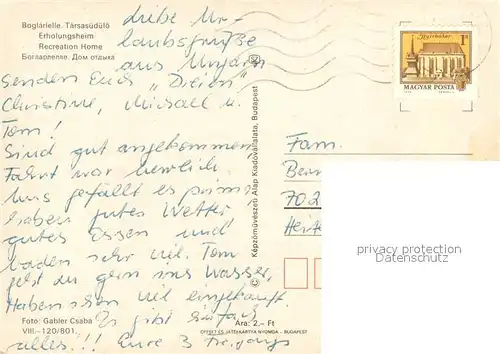 Boglárlelle. Társasüdülő
Erholungsheim
Recreation Home
Богларлелле. Дом отдыха
Liebe Ur-
laubsgrüße
aus Ungarn
senden Euch "Dreien"
Christine, Michael u.
Tom!
Sind gut angekommen,
Fahrt war herrlich.
Uns gefällt es prima,
haben gutes Wetter,
gutes Essen und
baden sehr viel. Tom
geht du gern ins Wasser,
Haben schon viel eingekauft.
Es gibt einfach
alles!!! Eure 3
Foto: Gabler Csaba
VIII.—120/801.
Ára: 2.— Ft
OFFSET ÉS JÁTÉKKÁRTYA NYOMDA - BUDAPEST
Képzőművészeti Alap Kiadóvállalata, Budapest
1 Ft
MAGYAR POSTA
Fam.
702
privacy protection
Datenschutz